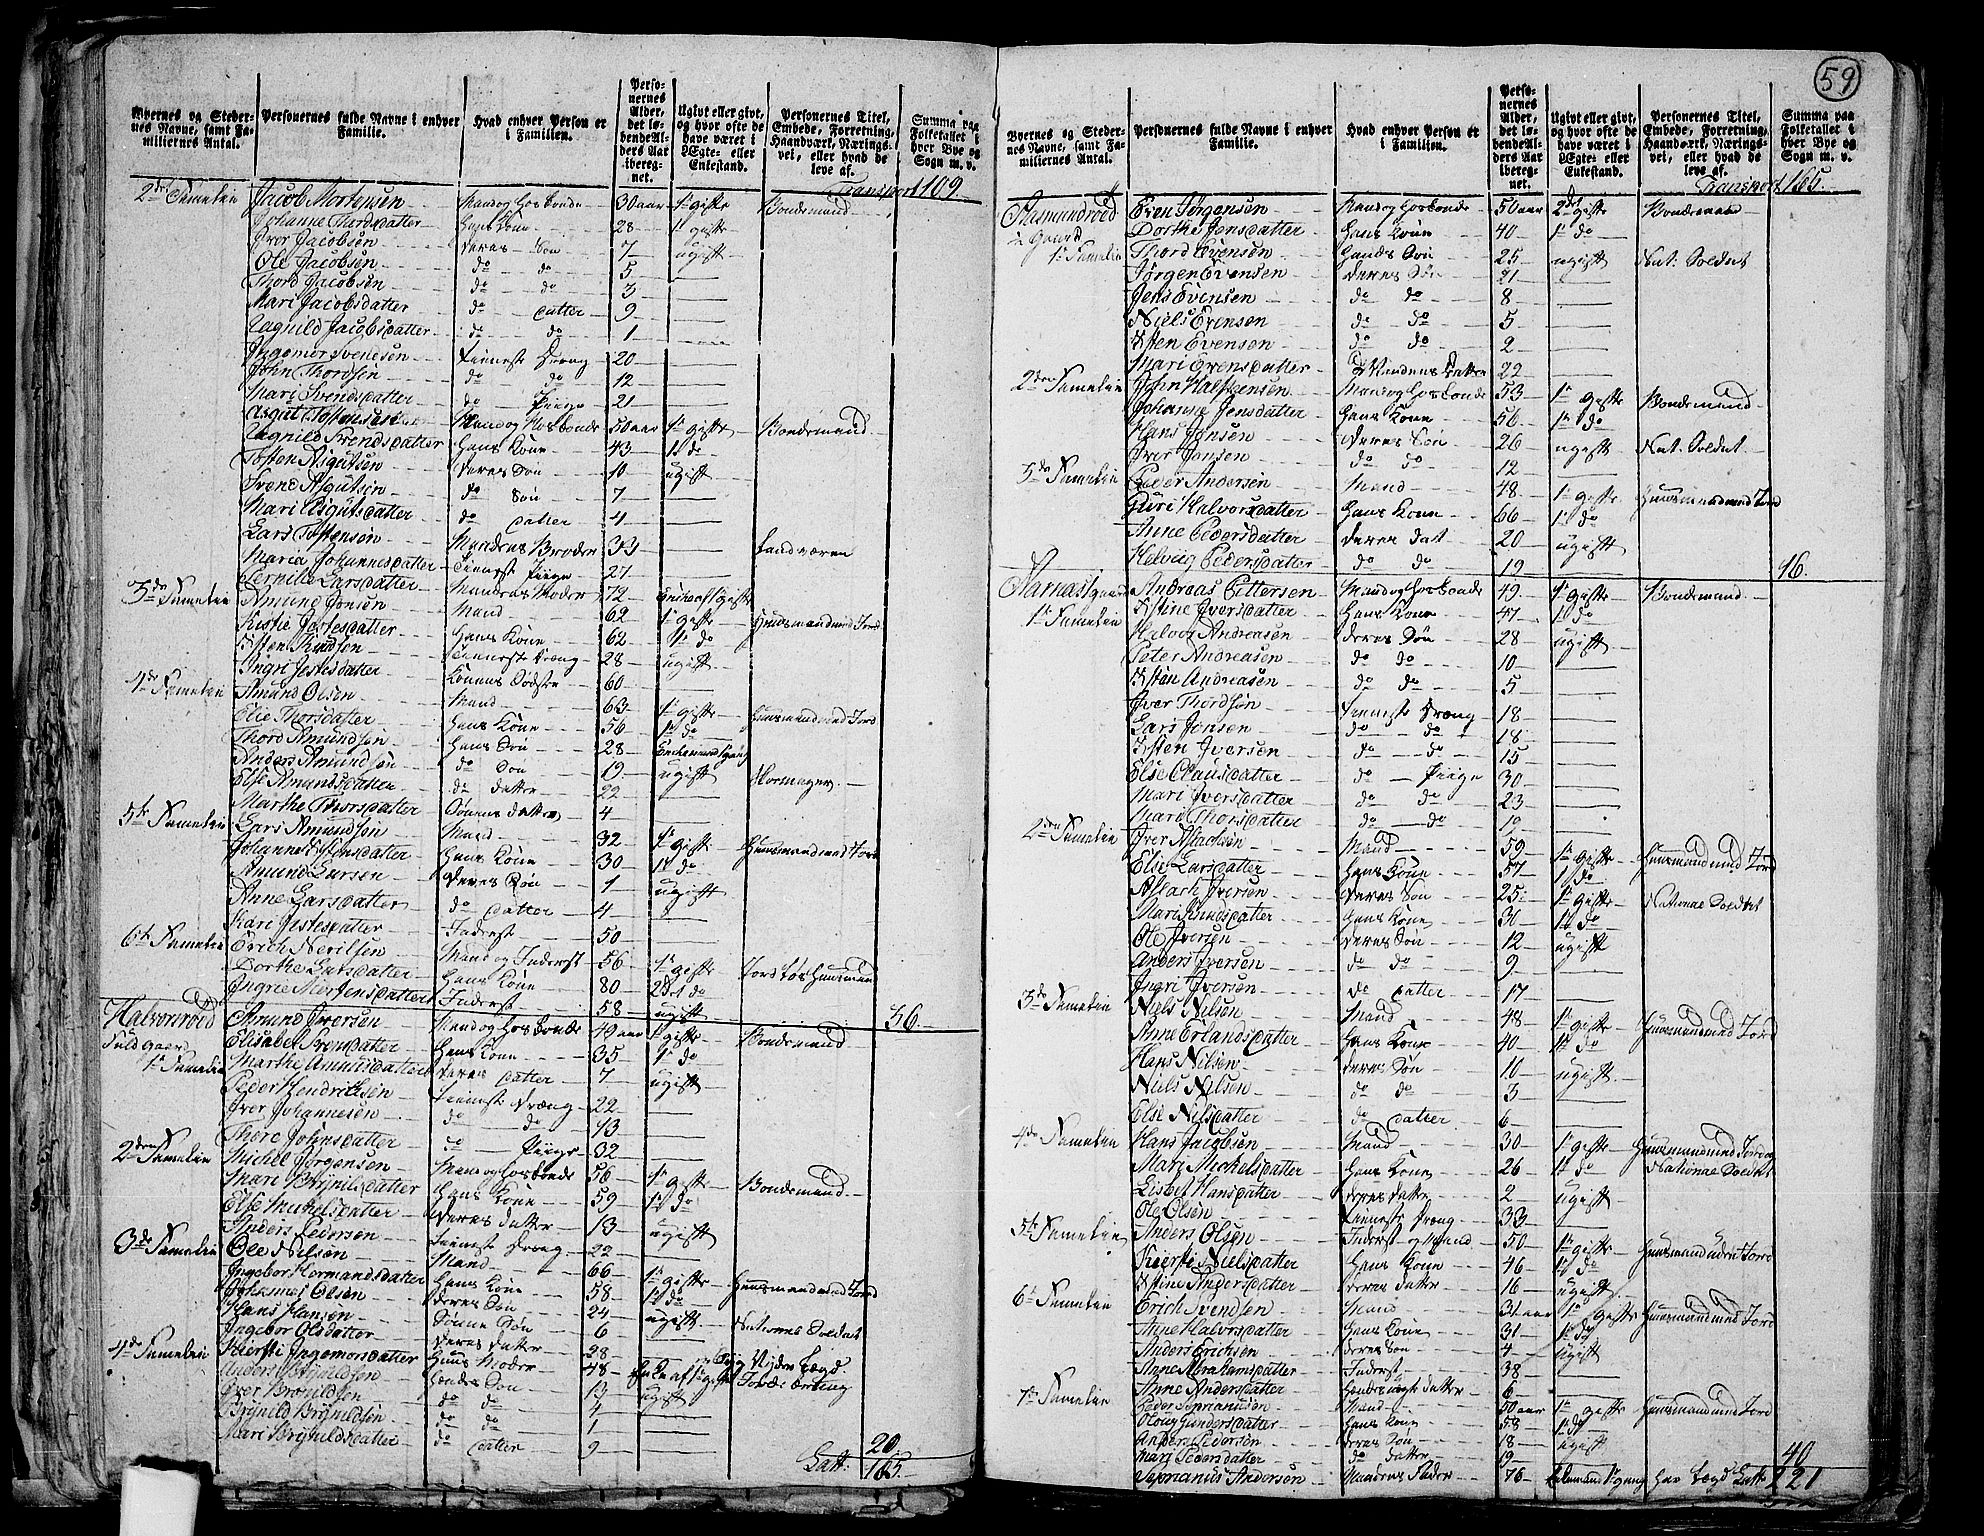 59
Byernes og Stedernes Navne, samt Familiernes Antal.
Personernes fulde Navne i enhver Familie.
Hvad enhver Person er i Familien.
Personernes Alder, det løbende Alders Aar iberegnet.
Ugivt eller givt, og hvor ofte de have været i Ægte- eller Enkestand.
Personernes Titel, Embede, Forretning, Haandværk, Næringsvei, eller hvad de leve af.
Summa paa Folketallet i hver Bye og Sogn m. v.
Transport 109
2de Famelie Jacob Mortensen Mand og Hosbonde 30 aar 1te gifte Bondemand
Johanne Thordsdatter Hans Kone 28 1te gifte
Iver Jacobsen Deres Søn 7 ugift
Ole Jacobsen do do 5
Thord Jacobsen do do 3
Mari Jacobsdatter do datter 9
Ragnild Jacobsdatter do do 1
Ingemor Svendsen Tieneste Dreng 20
John Thordsen do do 12
Mari Svendsdatter do Piige 21
Asgut Tostensen Mand og Hosbonde 50 aar 1te gifte Bondemand
Ragnild Svendsdatter Hans Kone 43 1te do
Tosten Asgutsen Deres Søn 10 ugift
Svend Asgutsen do Søn 7
Mari Asgutsdatter do datter 4
Lars Tostensen Mandens Broder 33 Landværn
Maria Johannesdatter Tieneste Piige 27
Pernille Larsdatter Mandens Moder 72
3de Famelie Amund Jonsen Mand 62 1te gifte Huusmand med Jord
Kistie Jostesdatter Hans Kone 62 1te do
Østen Knudsen Tieneste Dreng 28 ugift
Ingri Jostesdatter Konens Søster 60
4de Famelie Amund Olsen Mand 63 1te gifte Huusmand med Jord
Elie Thorsdatter Hans Kone 56 1te do
Thord Amundsen Hans Søn 28
Anders Amundsen do Søn 19 ugift
Else Amundsdatter do datter 22
Marthe Thorsdatter Sønnens datter 4
5te Famelie Lars Amundsen Mand 32 1te gifte Huusmand med Jord
Johanne Hans Kone 30 1te do
Amund Larsen Deres Søn 1 ugift
Anne Larsdatter do datter 4
Kari Jostesdatter Inderst 50
6te Famelie Erich Nerilsen Mand og Inderst 56 1te gifte
Dorthe Larsdatter Hans Kone 80 2det do
Ingrie Mortensdatter Inderst 58 ugift 56
Halvorsrød Amund Iversen Mand og Hosbonde 49 aar 1te gifte Bondemand
Fuld Gaard Elisabet Svensdatter Hans Kone 35 1te do
1te Famelie Marthe Amundsdatter Deres datter 7 ugift
Peder Hendrichsen Tieneste Dreng 22
Iver Johannesen do do 13
Thore Johnsdatter do Piige 32
2den Famelie Michel Jørgensen Mand og Hosbonde 56 1te gifte Bondemand
Mari Brynilsdatter Hans Kone 59 1te do
Else Michelsdatter Deres datter 13 ugift
Anders Pedersen Tieneste Dreng 22
3de Famelie Ole Nilsen Mand 66 1te gifte Huusmand med Jord
Ingebor Hormandsdatter Hans Kone 58 1te do
Johannes Olsen Deres Søn 24 ugift
Hans Hansen Sønne Søn 6
Ingebor Olsdatter Deres datter 28
4de Famelie Kiersti Ingemorsdatter Huus Moder 48
Anders Brynildsen Hendes Søn 13 ugift
Iver Brynildsen do do 4
Brynild Brynildsen do do 1
Mari Brynildsdatter do datter 9 20
Latt. 165
Byernes og Stedernes Navne, samt Familiernes Antal.
Personernes fulde Navne i enhver Familie.
Hvad enhver Person er i Familien.
Personernes Alder, det løbende Alders Aar iberegnet.
Ugivt eller givt, og hvor ofte de have været i Ægte- eller Enkestand.
Personernes Titel, Embede, Forretning, Haandværk, Næringsvei, eller hvad de leve af.
Summa paa Folketallet i hver Bye og Sogn m. v.
Transport 165
Aasmundrød Even Jørgensen Mand og Hosbonde 50 aar 2det gifte Bondemand
Gaard Dorthe Jensdatter Hans Kone 40 1te do
1te Famelie Thord Evensen Hands Søn 25 ugift Nat. Soldat
Jørgen Evensen Deres Søn 21
Jens Evensen do do 8
Niels Evensen do do 5
Østen Evensen do do 2
Mari Evensdatter Mandens datter 22
2den Famelie John Halstensen Mand og Hosbonde 53 1te gifte Bondemand
Johanne Jensdatter Hans Kone 56 1te do
Hans Jonsen Deres Søn 26 ugift Nat. Soldat
Iver Jonsen do do 12
3de Famelie Peder Andersen Mand 48 1te gifte Huusmand med Jord
Guri Halvorsdatter Hans Kone 66 1te do
Anne Pedersdatter Deres dat 20 ugift
Helvig Pedersdatter do do 19 16
Aarnæs 1 gaard Andreas Pittersen Mand og Hosbonde 49 1te gifte Bondemand
1te Famelie Østine Iversdatter Hans Kone 47 1te do
Halvor Andreasen Deres Søn 28 ugift
Peter Andreasen do do 10
Østen Andreasen do do 5
Iver Thordsøn Tieneste Dreng 18
Lars Jonsen do do 18
Østen Iversen do do 15
Else Clausdatter do Piige 30
Mari Iversdatter do do 23
Mari Thorsdatter do do 19
2den Famelie Iver Aslachsen Mand 59 1te gifte Huusmand med Jord
Else Larsdatter Hans Kone 57 1te do
Aslach Iversen Deres Søn 25 1te gifte National Soldat
Mari Knudsdatter Hans Kone 31 1te do
Ole Iversen Deres Søn 12 ugift
Anders Iversen do do 9
Ingri Iversen do datter 17
3de Famelie Niels Nilsen Mand 48 1te gifte Huusmand med Jord
Anne Erlandsdatter Hans Kone 40 1te do
Hans Nilsen Deres Søn 10 ugift
Niels Nilsen do do 3
Else Nilsdatter do datter 6
4de Famelie Hans Jacobsen Mand 30 1te gifte Huusmand med Jord og
Mari Mickelsdatter Hans Kone 26 1te do National Soldat
Lisbet Hansdatter Deres datter 2 ugift
Ole Olsen Tieneste Dreng 33
5te Famelie Anders Olsen Inderst og Mand 50 1te gifte Huusmand uden Jord
Kiersti Nielsdatter Hans Kone 46 1te do
Østine Andersdatter Deres datter 16 ugift
6te Famelie Erich Svendsen Mand 31 aar 1te gifte Huusmand med Jord
Anne Halvorsdatter Hans Kone 31 1te do
Anders Erichsen Deres Søn 4 ugift
Anne Abrahamsdatter Inderst 38
Anne Andersdatter Hendes datter 6
7de Famelie Peder Mand 50 aar 1te gifte Huusmand med Jord
Oloug Gundersdatter Hans Kone 58 1te do
Anders Pedersen Deres Søn 18 ugift
Mari Pedersdatter do datter 19 40
Andersen Mandens Fader 76 Latt. 221